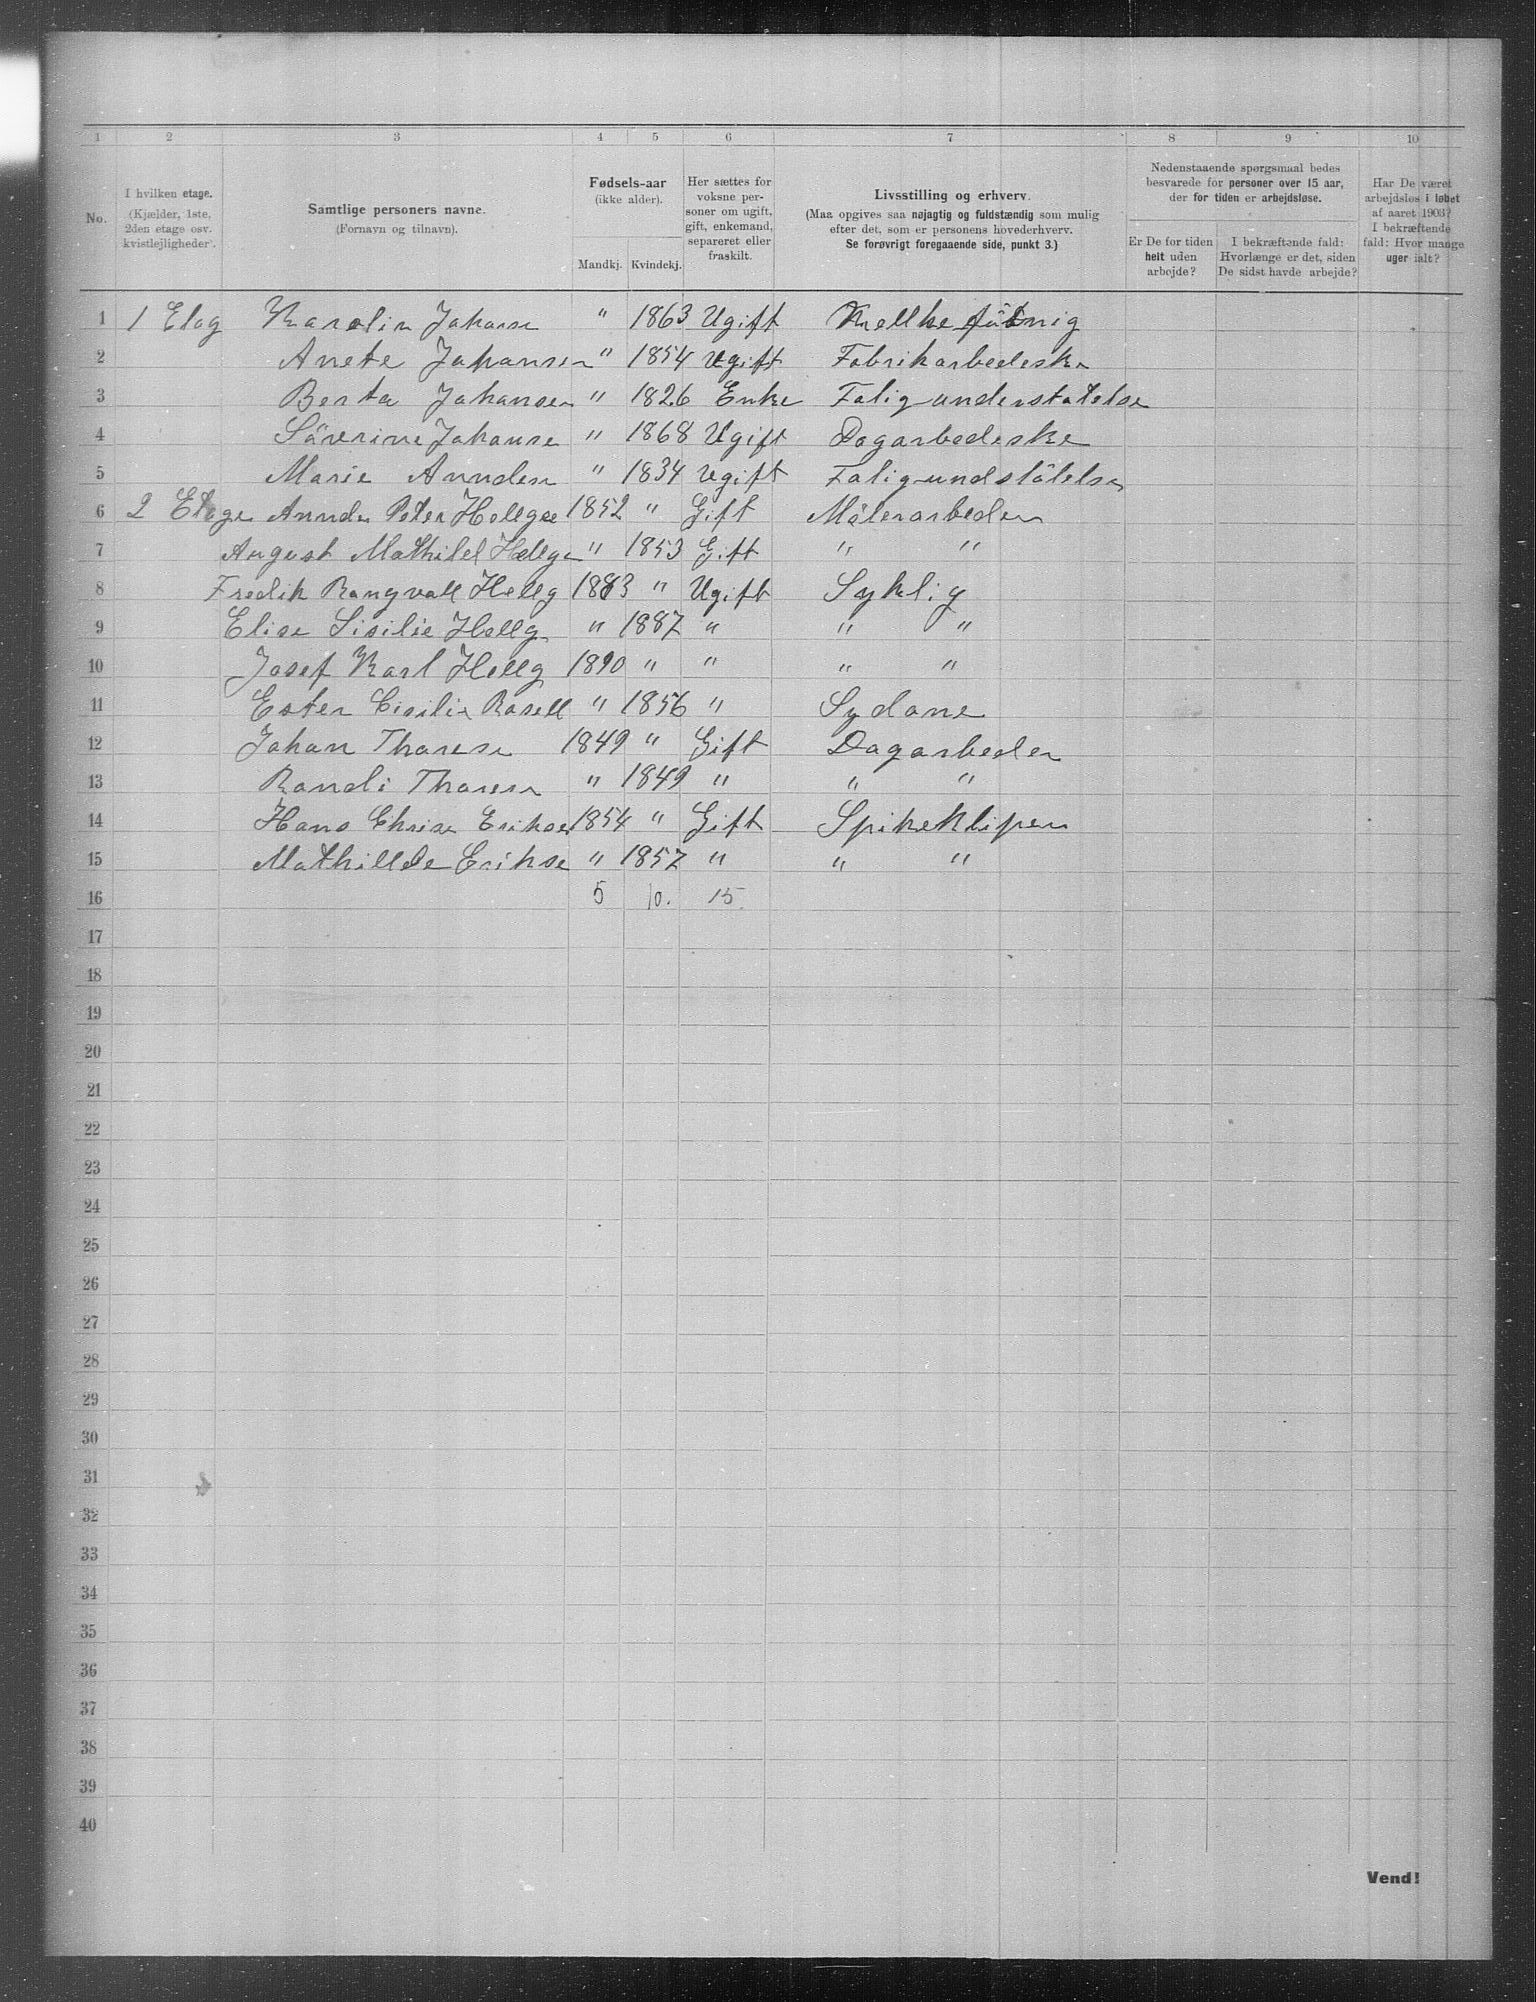 1 2 3 4 5 6 7 8 9 10
No.
I hvilken etage.
(Kjælder, 1ste,
2den etage osv.
kvistlejligheder).
Samtlige personers navne.
(Fornavn og tilnavn).
Fødsels-aar
(ikke alder).
Mandkj. Kvindekj.
Her sættes for
voksne per-
soner om ugift,
gift, enkemand,
separeret eller
fraskilt.
Livsstilling og erhverv.
(Maa opgives saa nøjagtig og fuldstændig som mulig
efter det, som er personens hovederhverv.
Se forøvrigt foregaaende side, punkt 3.)
Nedenstaaende spørgsmaal bedes
besvarede for personer over 15 aar,
der for tiden er arbejdsløse.
Er De for tiden
helt uden
arbejde?
I bekræftende fald:
Hvorlænge er det, siden
De sidst havde arbejde?
Har De været
arbejdsløs i løbet
af aaret 1903?
I bekræftende
fald: Hvor mange
uger ialt?
1 1 Etag Karolin Johanse " 1863 Ugift Mellke
2 Anete Johansen " 1854 Ugift Fabrikarbedeske
3 Berta Johansen " 1826 Enke Fatigunderstatelse
4 Säverine Johanse " 1868 Ugift Dagarbedeske
5 Marie Annden " 1834 Ugift Fatigundstätelse
6 2 Etage Annde Peter Hellgee 1852 " Gift Mälerarbeder
7 August Mathilel Hellge " 1853 Gift " "
8 Fredik Rangvall Hellg 1883 " Ugift Syklig
9 Elise Sisilie Hellg " 1887 " " "
10 Josef Karl Hellg 1890 " " " "
11 Ester Cisilie Rosell " 1856 " Sydane
12 Johan Thorese 1849 " Gift Dagarbeder
13 Randi Thorese " 1849 " " "
14 Hans Chrise Erikse 1854 " Gift Spikeklipen
15 Mathillde Erikse " 1857 " " "
16 5 10. 15
17
18
19
20
21
22
23
24
25
26
27
28
29
30
31
32
33
34
35
36
37
38
39
40
Vend!